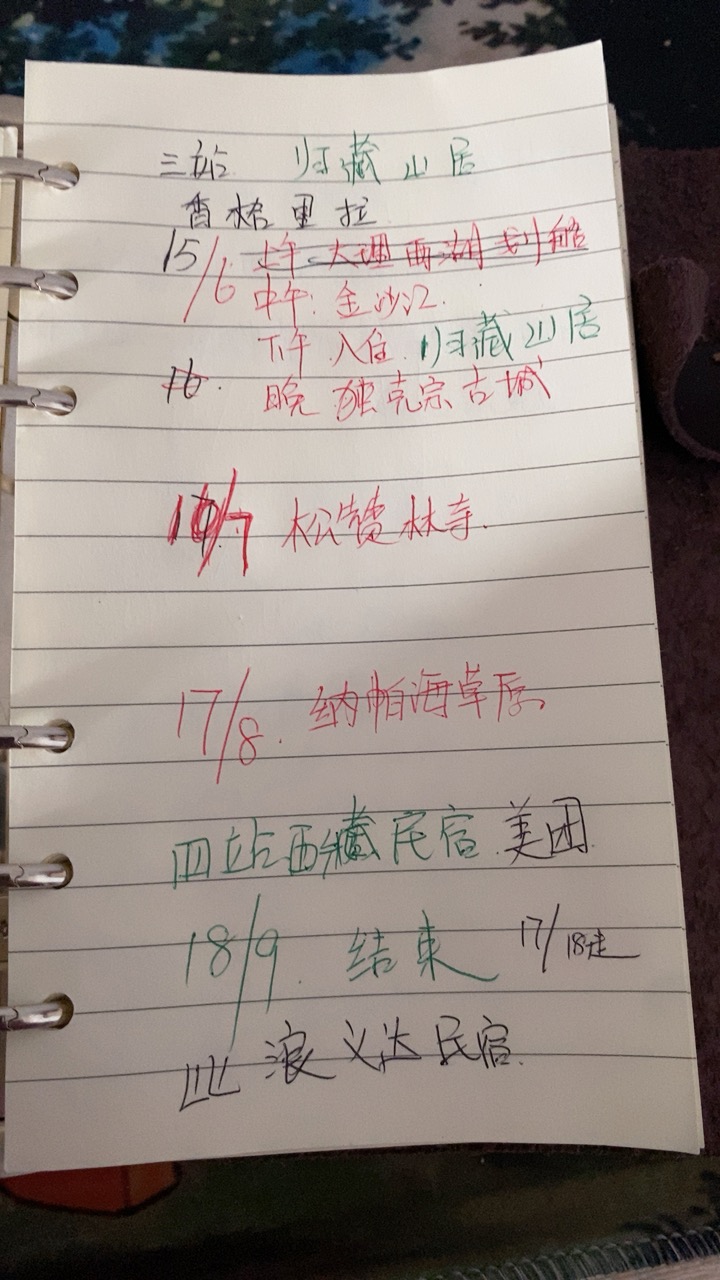 三站 归藏山居
香格里拉
15/6 上午:大理西湖划船
中午:金沙江.
下午 入住 归藏山居
16. 晚 独克宗古城
/7 松赞林寺.
17/8. 纳帕海草原
四站西藏民宿 美团
18/9. 结束 17/18走
浪义达民宿.